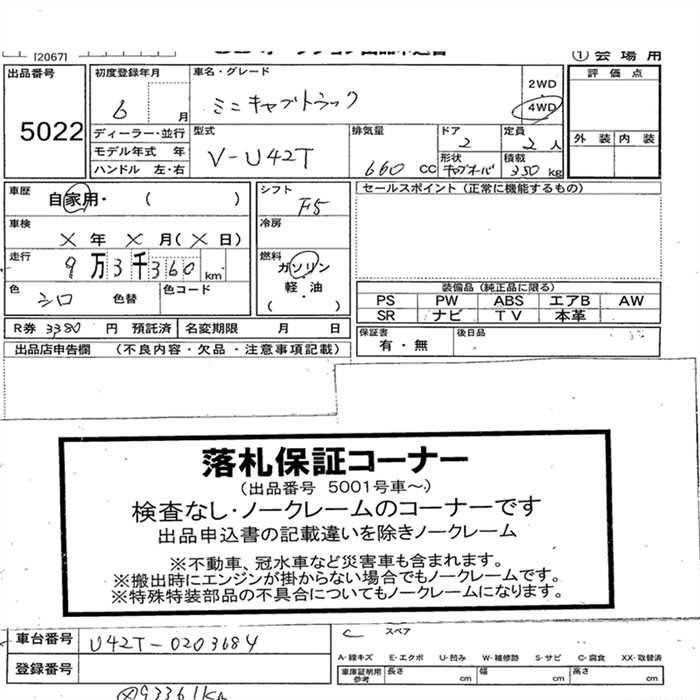 [2067]
① 会場用
出品番号
5022
初度登録年月
6 月
車名・グレード
ミニキャブトラック
2WD
4WD
評価点
外装 内装
ディーラー・並行
モデル年式 年
ハンドル 左・右
型式
V-U42T
排気量
660 CC
ドア
2
定員
2 人
形状
積載
350 kg
車歴
自家用・( )
車検
× 年 × 月(× 日)
走行
9 万 3 千 360 km
色
シロ
色替
色コード
シフト
F5
冷房
燃料
ガソリン
軽・油
( ・ )
セールスポイント (正常に機能するもの)
装備品 (純正品に限る)
PS PW ABS エアB AW
SR ナビ TV 本革
R券 3380 円 預託済
名変期限 月 日
保証書
有・無
後日品
出品店申告欄 (不良内容・欠品・注意事項記載)
落札保証コーナー
(出品番号 5001号車〜)
検査なし・ノークレームのコーナーです
出品申込書の記載違いを除きノークレーム
※不動車、冠水車など災害車も含まれます。
※搬出時にエンジンが掛からない場合でもノークレームです。
※特殊特装部品の不具合についてもノークレームになります。
車台番号
U42T-0203684
登録番号
スペア
A-線キズ E-エクボ U-凹み W-補修跡 S-サビ C-腐食 XX-取替済
車庫証明用参考
長さ cm
幅 cm
高さ cm